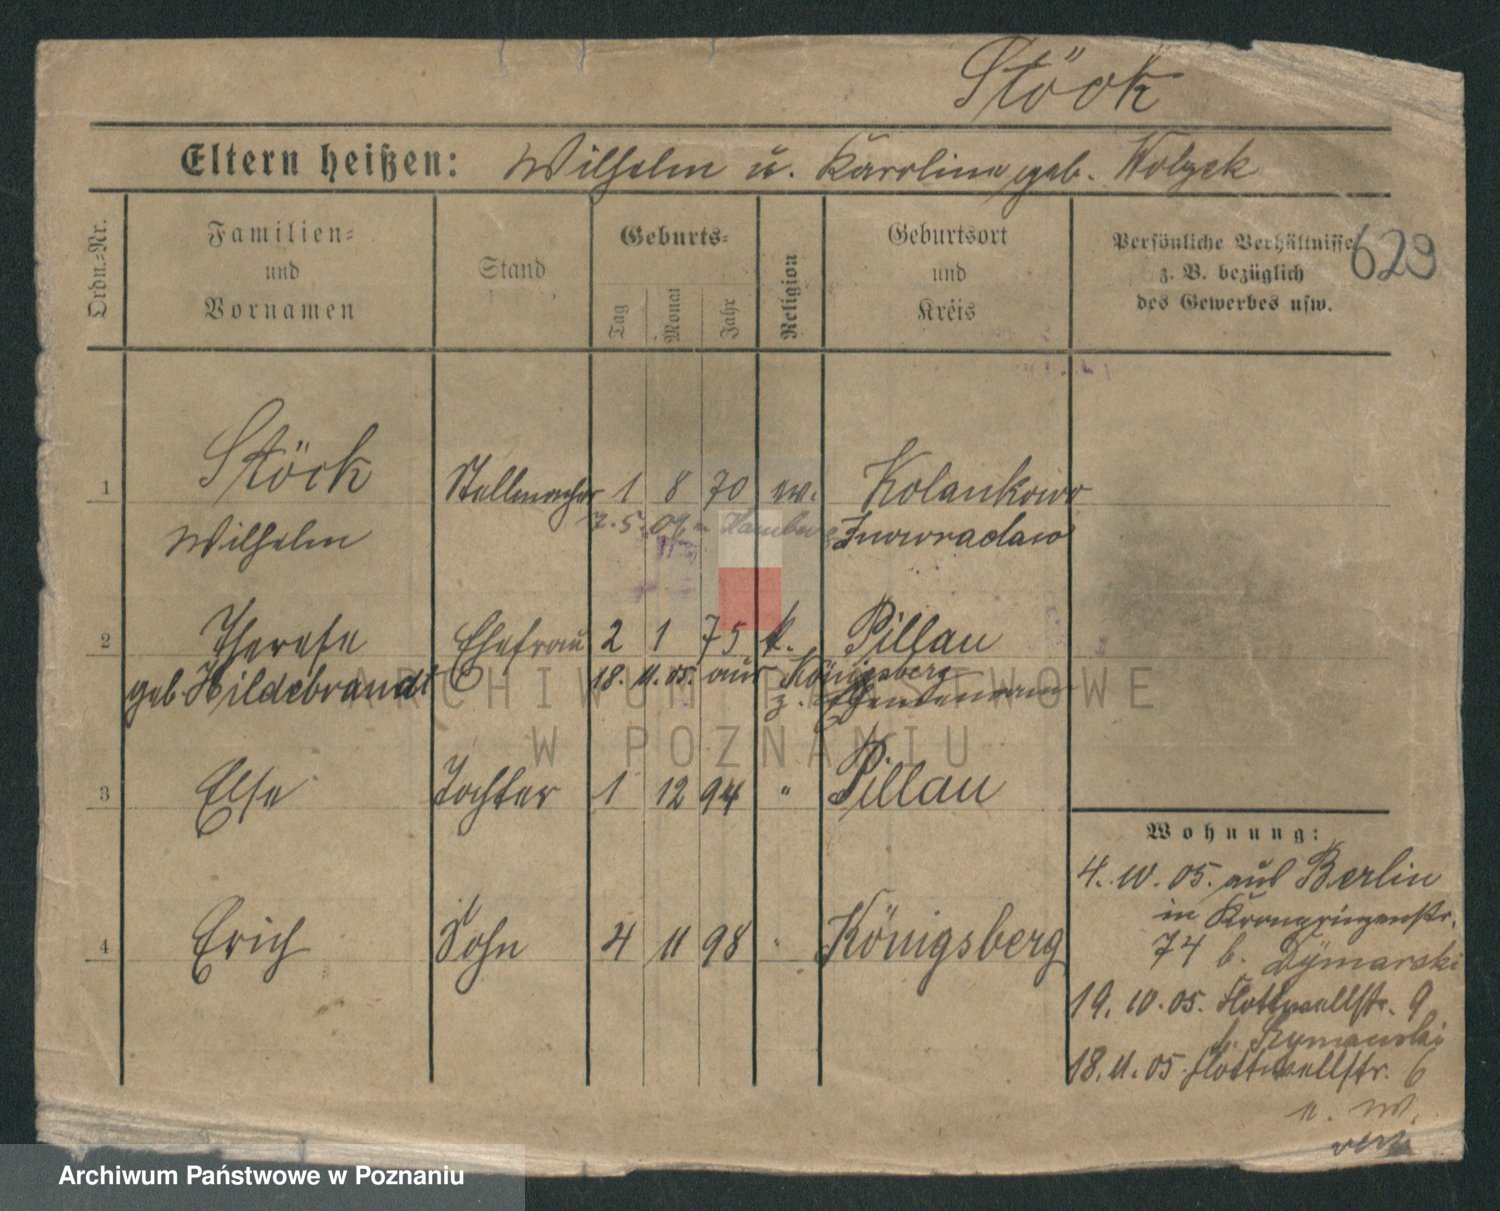 Stöck
Eltern heißen: Wilhelm u. Karoline geb. Kolzek
Ordn.-Nr.
Familien- und Vornamen
Stand
Geburts-
Tag
Monat
Jahr
Religion
Geburtsort und Kreis
Persönliche Verhältnisse
z. B. bezüglich
des Gewerbes usw.
629
1 Stöck Stellmacher 1 8 70 ev. Kolankowo
Wilhelm 7. 5. 09 n. Hamburg Inowraclaw
2 Therese Ehefrau 2 1 75 k. Pillau
geb. Hildebrandt 18. 11. 05. aus Königsberg
z.
3 Else Tochter 1 12 94 " Pillau
4 Erich Sohn 4 11 98 " Königsberg
Wohnung:
4. 10. 05. aus Berlin
in Kronprinzenstr.
74 b. Dymarski
19. 10. 05. Flottwellstr. 9
b. Szymanski
18. 11. 05. Flottwellstr. 6
n. W.
verz.
ARCHIWUM PAŃSTWOWE
W POZNANIU
Archiwum Państwowe w Poznaniu